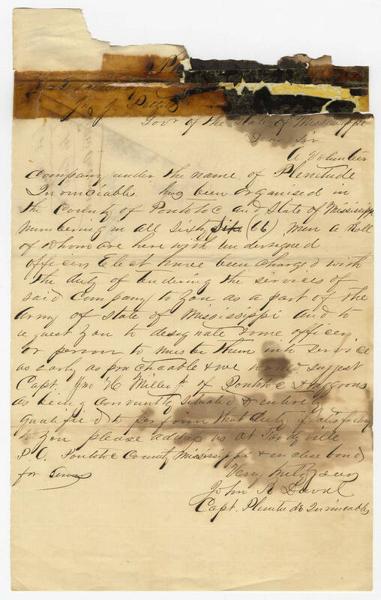 Gov of the State of Mississippi
Dear Sir
A Volunteer
Company under the name of Plenitude
Invincibles has been organised in
the County of Pontotoc and State of Mississippi
numbering in all Sixty Six (66) men a Roll
of whom are here with
officers Elect have been Charged with
the duty of tendering the services of
said Company to you as a part of the
Army of State of Mississippi and to
request you to designate some officer
or person to muster them into service
as early as practicable & we would suggest
Capt. Jno H Miller of Pontotoc
as being conveniently situated & entirely
qualified to perform that duty satisfactory
to you please address us at
P.O. Pontotoc County Mississippi & enclose bond
for
Very
John R
Capt. Plenitude Invincibles